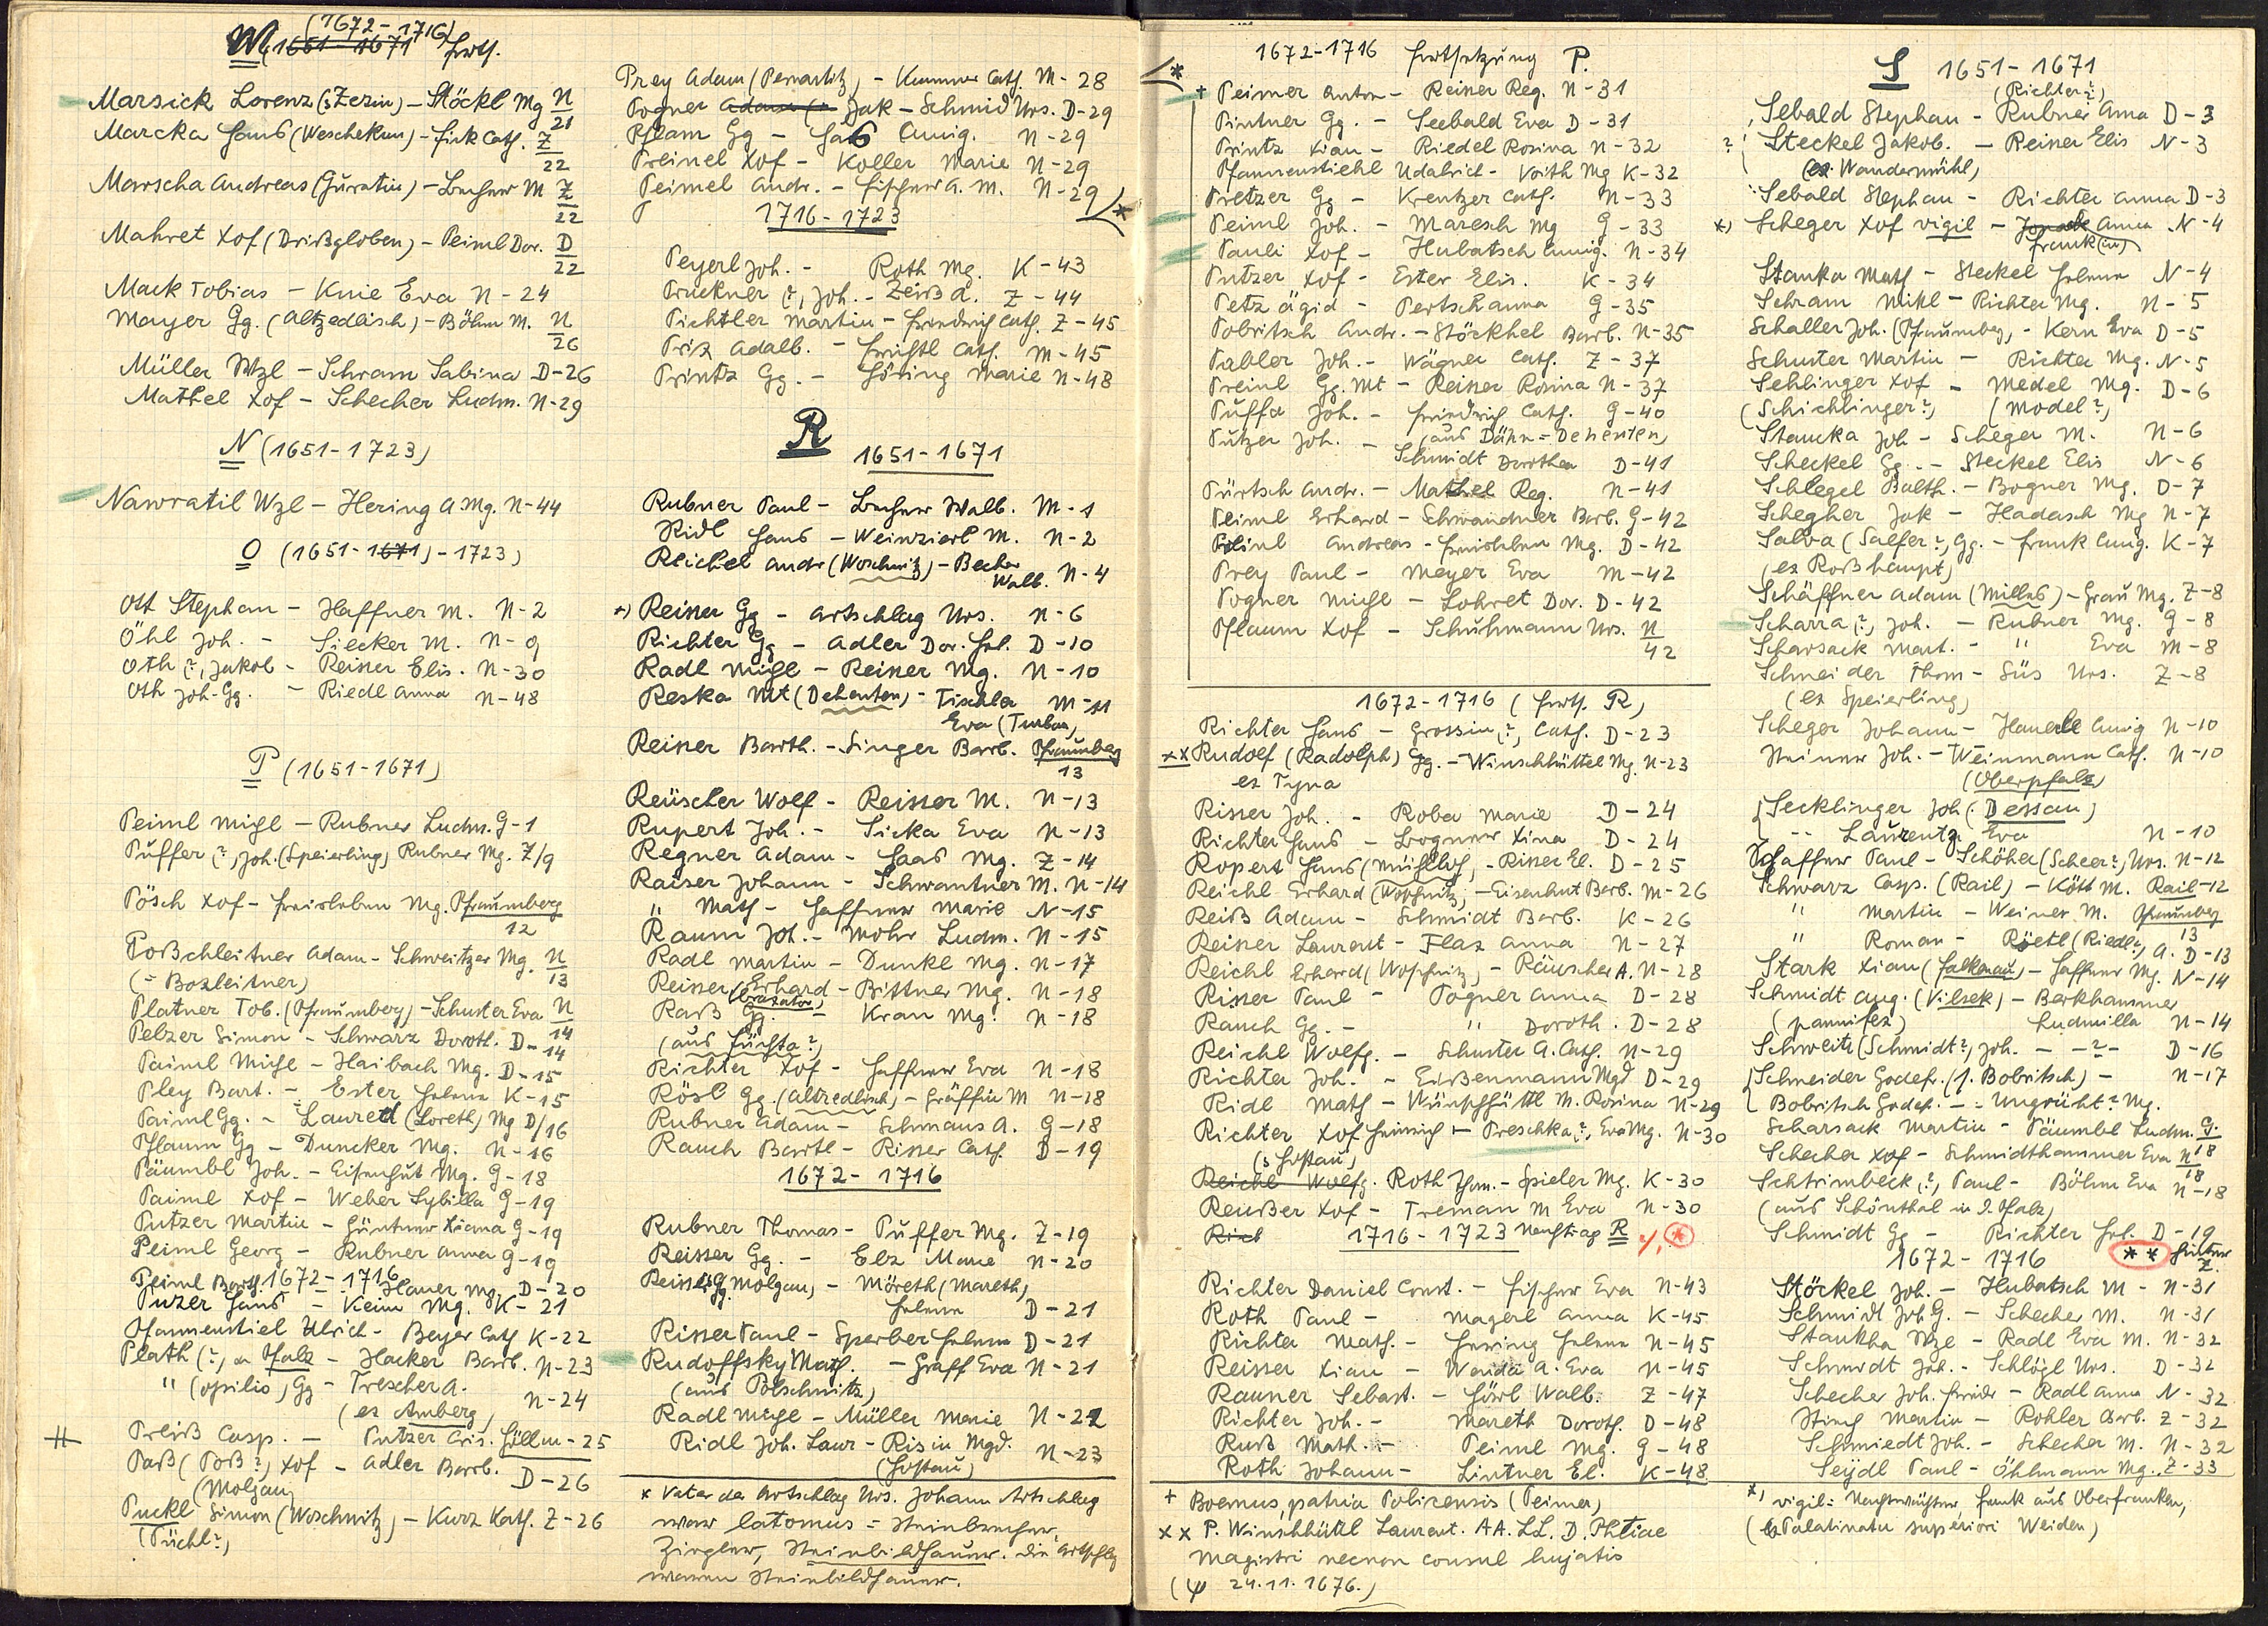 (1672-1716)
M (1651-1671 Forts.
Marsick Lorenz (Zezin) - Stöckl Mg N 21
Marcka Hans (Weschekun) - Fink Cath. Z 22
Marscha Andreas (Guratin) - Lechner M Z 22
Mahret Xof (Drißgloben) - Peiml Dor. D 22
Mack Tobias - Knie Eva N-24
Mayer Gg. (Altzedlisch) - Böhm M. N 26
Müller Wzl - Schram Sabina D-26
Mathel Xof - Schecher Ludm. N-29
N (1651-1723)
Nawratil Wzl - Hering A. Mg. N-44
O (1651-1671) - 1723)
Ott Stephan - Haffner M. N-2
Öhl Joh. - Siecker M. N-9
Oth (?) Jakob - Reiner Elis. N-30
Oth Joh. Gg. - Riedl Anna N-48
P (1651-1671)
Peiml Migl - Rubner Ludm. G-1
Puffer (?) Joh. (Speierling) Rubner Mg. Z/9
Pösch Xof - Freisleben Mg. Pfraumberg 12
Poßchleitner Adam - Schweitzer Mg. N 13
(= Boxleitner)
Platner Tob. (Pfraumberg) - Schuster Eva N 14
Pelzer Simon - Schwarz Doroth. D-14
Paiml Migl - Haibach Mg. D-15
Pley Bart. - Ester Helena K-15
Paiml Gg. - Lauretl (Loreth) Mg D/16
Pflaum Gg - Duncker Mg. N-16
Päumbl Joh. - Eisenhut Mg. G-18
Paiml Xof - Weber Sybilla G-19
Putzer Martin - Güntner Xiana G-19
Peiml Georg - Rubner Anna G-19
1672-1716
Peiml Barth. - Hauer Mg. D-20
Puzer Hans - Keim Mg. K-21
Pfannenstiel Ulrich - Beyer Cath K-22
Plath (?) a Pfalz - Hacker Barb. N-23
" (opilio) Gg - Trescher A. N-24
(ex Amberg)
Preiß Casp. - Putzer Cris. Höll M-25
Paß (Poß?) Xof - Adler Barb. D-26
(Molgau)
Puckl Simon (Woschnitz) - Kurz Kath. Z-26
(Püchl?)
Prey Adam (Pernartitz) - Kummer Cath. M-28
Pogner Adam (- Jak - Schmid Urs. D-29
Pflam Gg - Haß Cunig. N-29
Preinel Xof - Koller Marie N-29
Peimel Andr. - Fischer A. M. N-29
1716-1723
Peyerl Joh. - Roth Mg. K-43
Pruckner (?) Joh. - Zeiß A. Z-44
Pichtler Martin - Friedrich Cath. Z-45
Prix Adalb. - Früchtl Cath. M-45
Printz Gg. - Höring Marie N-48
R
1651-1671
Rubner Paul - Lechner Walb. M-1
Ridl Hans - Weinzierl M. N-2
Reichel Andr (Woschnitz) - Becher Walb. N-4
*) Reiner Gg - Artschlag Urs. N-6
Richter Gg - Adler Dor. Hel. D-10
Radl Migl - Reiner Mg. N-10
Reska Mt (Dehenten) - Tischler M-11
Eva (Turban)
Reiner Barth. - Singer Barb. Pfraumberg 13
Reüscher Wolf - Reisser M. N-13
Rupert Joh. - Sicka Eva N-13
Regner Adam - Haas Mg. Z-14
Raiser Johann - Schwantner M. N-14
" Math - Haffner Marie N-15
Raum Joh. - Mohr Ludm. N-15
Radl Martin - Dunkl Mg. N-17
Reisser Erhard - Bittner Mg. N-18
Raß Gg. - Kran Mg. N-18
(aus Füchta?)
Richter Xof - Haffner Eva N-18
Rösl Gg. (Altzedlisch) - Gräffin M N-18
Rubner Adam - Schmaus A. G-18
Rauch Bartl - Risser Cath. D-19
1672-1716
Rubner Thomas - Puffer Mg. Z-19
Reisser Gg. - Elz Marie N-20
Reiss Gg. Molgau) - Möreth (Mareth)
Helena D-21
Risser Paul - Sperber Helena D-21
Rudoffsky Math. - Graff Eva N-21
(aus Polschnitz)
Radl Migl - Müller Marie N-22
Ridl Joh. Laur - Risin Mgd. N-23
(Hostau)
* Vater der Artschlag Urs. Johann Artschlag
war latomus = Steinbrecher,
Ziegler, Steinbildhauer. Die Artschlag
waren Steinbildhauer.
1672-1716 Fortsetzung P.
+ Peimer Anton - Reiner Reg. N-31
Pintner Gg. - Seebald Eva D-31
Printz Xian - Riedel Rosina N-32
Pfannenstiehl Udalrich - Voith Mg K-32
Pretzer Gg - Kreutzer Cath. N-33
Peiml Joh. - Maresch Mg G-33
Pauli Xof - Hubatsch Cunig. N-34
Putzer Xof - Ester Elis. K-34
Petz Ägid - Pertsch Anna G-35
Pobritsch Andr. - Störkhel Barb. N-35
Pabler Joh. - Wagner Cath. Z-37
Preinl Gg. Mt - Reiser Rosina N-37
Puffa Joh. - Friedrich Cath. G-40
Putzer Joh. - (aus Dähn = Dehenten)
Schmidt Dorothea D-41
Pürtsch Andr. - Mathel Reg. N-41
Peiml Erhard - Schwandner Barb. G-42
Peiml Andreas - Freisleben Mg. D-42
Prey Paul - Meyer Eva M-42
Pogner Migl - Lohret Dor. D-42
Pflaum Xof - Schuhmann Urs. N 42
1672-1716 (Forts. R)
Richter Hans - Grossin (?) Cath. D-23
xx Rudolf (Radolph) Gg. - Winschhüttel Mg. N-23
ex Tyna
Risser Joh. - Roba Marie D-24
Richter Hans - Bogner Xina D-24
Ropert Hans (Mühlhof) - Risser El. D-25
Reichl Erhard (Woschnitz) - Eisenhut Barb. M-26
Reiß Adam - Schmidt Barb. K-26
Reiner Laurent - Flax Anna N-27
Reichl Erhard (Woschnitz) - Räuscher A. N-28
Risser Paul - Pogner Anna D-28
Rauch Gg. - " Doroth. D-28
Reichl Wolfg. - Schuster A. Cath. N-29
Richter Joh. - Eißenmann Mgd D-29
Ridl Math - Wünschhüttl M. Rosina N-29
Richter Xof Heinrich - Preschka (?) Eva Mg. N-30
(Hostau)
Reichl Wolfg. Roth Thom. - Spieler Mg. K-30
Reußer Xof - Treman M Eva N-30
Richt 1716-1723 Nachtrag R
Richter Daniel Const. - Fischer Eva N-43
Roth Paul - Magerl Anna K-45
Richter Math. - Hering Helena N-45
Reisser Xian - Wanda A. Eva N-45
Rauner Sebast. - Hörl Walb. Z-47
Richter Joh. - Mareth Doroth. D-48
Ruß Math. - Peiml Mg. G-48
Roth Johann - Lintner El. K-48
+ Boemus, patria Polizensis (Peimer)
xx P. Winschhüttl Laurent. AA. LL. D. Phtiae
magistri necnon consul hujatis
(24.11.1676.)
S 1651-1671
(Richter?)
Sebald Stephan - Rubner Anna D-3
? Steckel Jakob. - Reiner Elis N-3
(ex Wandermühl)
Sebald Stephan - Richter Anna D-3
*) Scheger Xof vigil - Anna N-4
Frank(in)
Stanka Math - Steckel Helena N-4
Schram Nikl - Richter Mg. N-5
Schaller Joh. (Pfraumberg) - Kern Eva D-5
Schuster Martin - Richter Mg. N-5
Sehlinger Xof - Medel Mg. D-6
(Schichlinger?) (Model?)
Stancka Joh - Scheger M. N-6
Scheckel Gg. - Steckel Elis N-6
Schlegel Balth. - Bogner Mg. D-7
Schegher Jak - Hadasch Mg N-7
Salva (Salfer?) Gg. - Frank Cung. K-7
(ex Roßhaupt)
Schäffner Adam (Milles) - Grau Mg. Z-8
Scharra (?) Joh. - Rubner Mg. G-8
Scharsack Mart. - " Eva M-8
Schneider Thom - Süs Urs. Z-8
(ex Speierling)
Scheger Johann - Hauerle Cunig N-10
Steiner Joh. - Weinmann Cath. N-10
(Oberpfalz)
Secklinger Joh (: Dessau)
-- Laurentz Eva N-10
Schaffer Paul - Schöher (Scheer?) Urs. N-12
Schwarz Casp. (Rail) - Kött M. Rail-12
" Martin - Weiner M. Pfraumberg 13
" Roman - Röetl (Riedl?) A. D-13
Stark Xian (Falkenau) - Haffner Mg. N-14
Schmidt Aug. (Vilsek) - Berkhammer
(pannifex) Ludmilla N-14
Schweitz (Schmidt?) Joh. - -?- D-16
Schneider Godefr. (1. Bobritsch) - N-17
Bobritsch Godef. - - Ungrüht? Mg.
Scharsack Martin - Päumbl Ludm. G. 18
Schecher Xof - Schmidthammer Eva N 18
Schrimbeck (?) Paul - Böhm Eva N-18
(aus Schönthal in d. Pfalz)
Schmidt Gg - Richter Hel. D-19
1672-1716 ** hinter Z.
Stöckel Joh. - Hubatsch M - N-31
Schmidt Joh. G. - Schecher M. N-31
Stankha Wze - Radl Eva M. N-32
Schmidt Joh. - Schlögl Urs. D-32
Schecher Joh. Friedr - Radl Anna N-32
Stingl Martin - Rohler Barb. Z-32
Schmiedt Joh. - Schecher M. N-32
Seydl Paul - Öhlmann Mg. Z-33
*) vigil = Nachtwächter Frank aus Oberfranken,
(ex Palatinatu superiori Weiden)